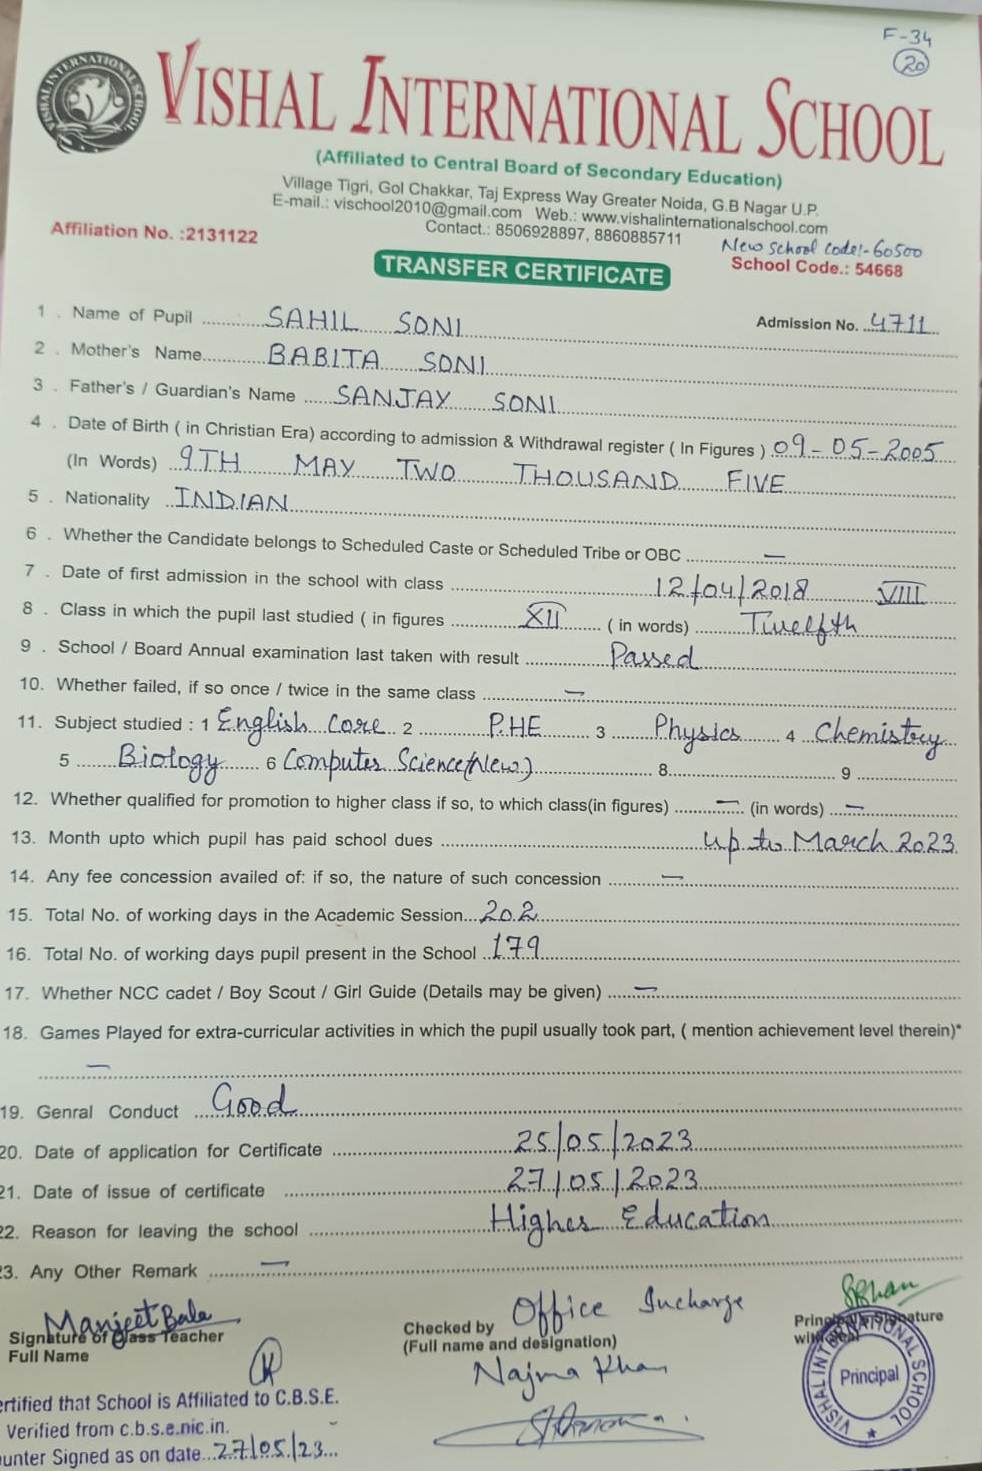 F-34
20
VISHAL INTERNATIONAL SCHOOL
VISHAL INTERNATIONAL SCHOOL
(Affiliated to Central Board of Secondary Education)
Village Tigri, Gol Chakkar, Taj Express Way Greater Noida, G.B Nagar U.P.
E-mail.: vischool2010@gmail.com Web.: www.vishalinternationalschool.com
Contact.: 8506928897, 8860885711
Affiliation No. :2131122
New School Code:- 60500
School Code.: 54668
TRANSFER CERTIFICATE
1 . Name of Pupil SAHIL SONI Admission No. 4711
2 . Mother's Name BABITA SONI
3 . Father's / Guardian's Name SANJAY SONI
4 . Date of Birth ( in Christian Era) according to admission & Withdrawal register ( In Figures ) 09-05-2005
(In Words) 9TH MAY TWO THOUSAND FIVE
5 . Nationality INDIAN
6 . Whether the Candidate belongs to Scheduled Caste or Scheduled Tribe or OBC —
7 . Date of first admission in the school with class 12/04/2018 VIII
8 . Class in which the pupil last studied ( in figures XII ( in words) Twelfth
9 . School / Board Annual examination last taken with result Passed
10. Whether failed, if so once / twice in the same class —
11. Subject studied : 1 English Core 2 P.HE 3 Physics 4 Chemistry
5 Biology 6 Computer Science(New) 8 9
12. Whether qualified for promotion to higher class if so, to which class(in figures) — (in words) —
13. Month upto which pupil has paid school dues up to March 2023
14. Any fee concession availed of: if so, the nature of such concession —
15. Total No. of working days in the Academic Session 202
16. Total No. of working days pupil present in the School 179
17. Whether NCC cadet / Boy Scout / Girl Guide (Details may be given) —
18. Games Played for extra-curricular activities in which the pupil usually took part, ( mention achievement level therein)*
—
19. Genral Conduct Good
20. Date of application for Certificate 25/05/2023
21. Date of issue of certificate 27/05/2023
22. Reason for leaving the school Higher Education
23. Any Other Remark —
Manjeet Bala
Signature of Class Teacher
Full Name
Office Incharge
Checked by
(Full name and designation)
Najma Khan
Principal's Signature
with seal
VISHAL INTERNATIONAL SCHOOL
Principal
ertified that School is Affiliated to C.B.S.E.
Verified from c.b.s.e.nic.in.
unter Signed as on date...27/05/23...